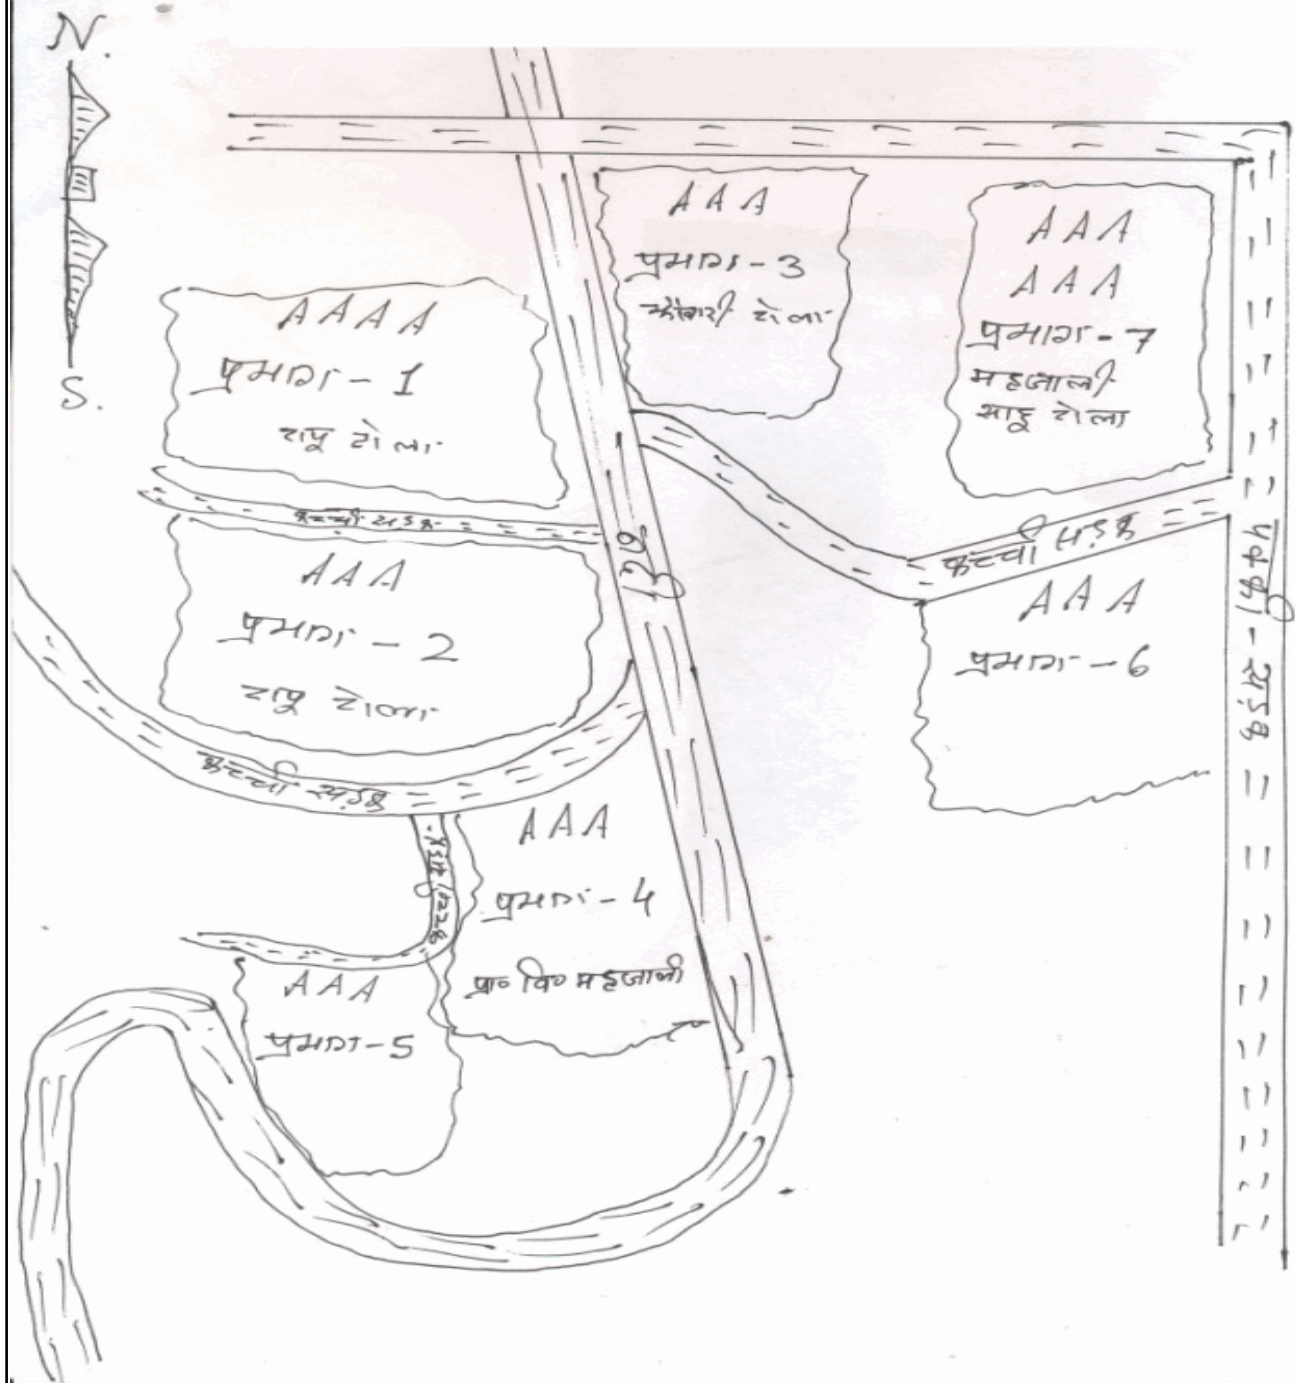 N.
S.
A A A A
प्रभाग - 1
टापू टोला
कच्ची सड़क
A A A
प्रभाग - 2
टापू टोला
कच्ची सड़क
A A A
प्रभाग - 3
टोला
A A A
A A A
प्रभाग - 7
महजाली
साहू टोला
कच्ची सड़क
A A A
प्रभाग - 6
पक्की - सड़क
A A A
प्रभाग - 4
प्रा० वि० महजाली
कच्ची सड़क
A A A
प्रभाग - 5